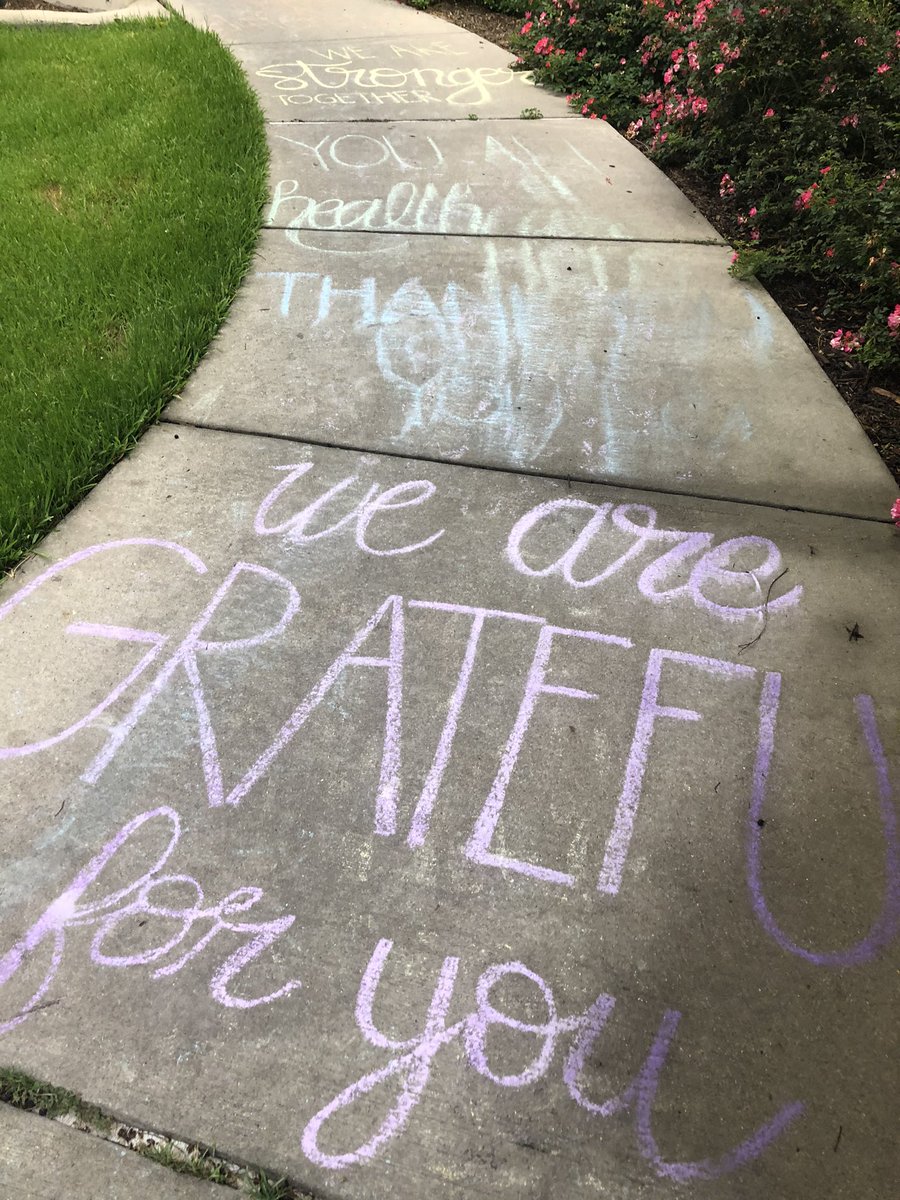 WE ARE
stronger
TOGETHER
YOU ALL
healthy
THANK YOU
we are
GRATEFU
for you